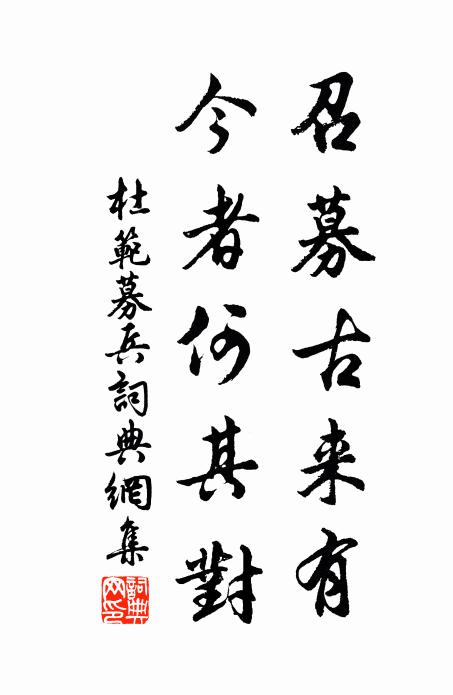 召募古来有
今者何其對
杜範募兵詞典網集
詞典網印